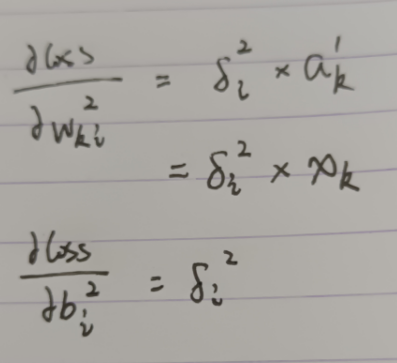 ∂loss/∂w²ₖᵢ = δᵢ² × a¹ₖ
= δᵢ² × xₖ
∂loss/∂bᵢ² = δᵢ²